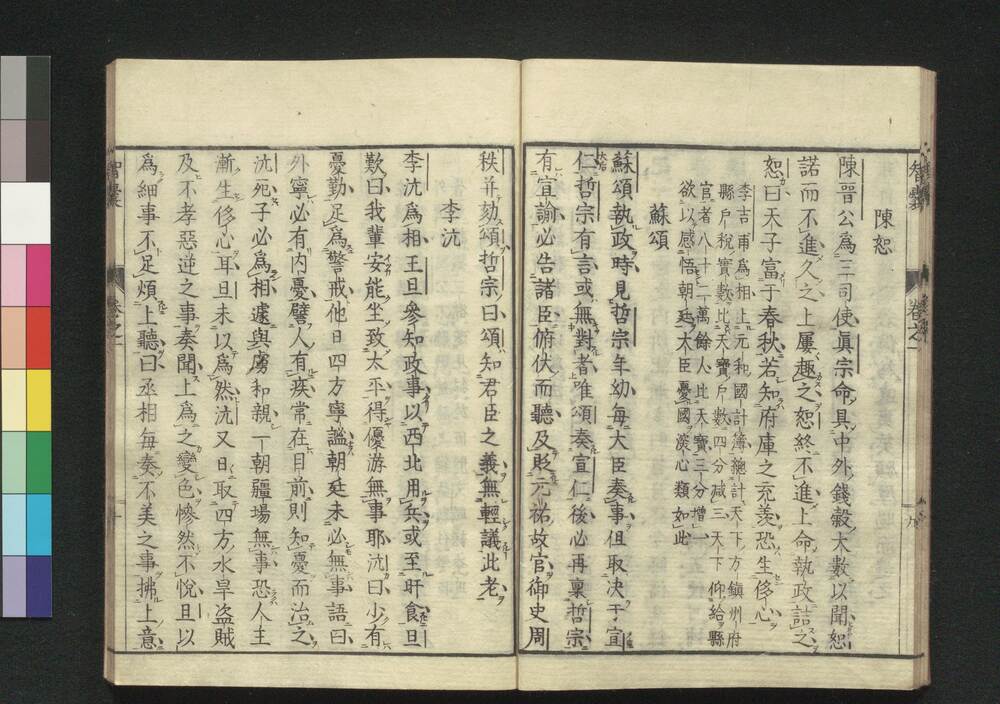 智囊
卷之一
九
陳恕
陳晉公為三司使真宗命具中外錢穀大數以聞恕
諾而不進久之上屢趣之恕終不進上命執政詰之
恕曰天子富于春秋若知府庫之充羨恐生侈心
李吉甫為相上元和國計簿總計天下方鎮州府
縣戶稅實數比天寶戶數四分減三天下仰給縣
官者八十二萬餘人比天寶三分增一
欲以感悟朝廷大臣憂國深心類如此
蘇頌
蘇頌執政時見哲宗年幼每大臣奏事但取決于宣
仁哲宗有言或無對者唯頌奏宣仁後必再稟哲宗
有宣諭必告諸臣俯伏而聽及貶元祐故官御史周
秩并劾頌哲宗曰頌知君臣之義無輕議此老
李沆
李沆為相王旦參知政事以西北用兵或至旰食旦
歎曰我輩安能坐致太平得優游無事耶沆曰少有
憂勤足為警戒他日四方寧謐朝廷未必無事語曰
外寧必有內憂譬人有疾常在目前則知憂而治之
沆死子必為相遽與虜和親一朝疆場無事恐人主
漸生侈心耳旦未以為然沆又日取四方水旱盜賊
及不孝惡逆之事奏聞上為之變色慘然不悅旦以
為細事不足煩上聽曰丞相每奏不美之事拂上意
智囊
卷之一
十